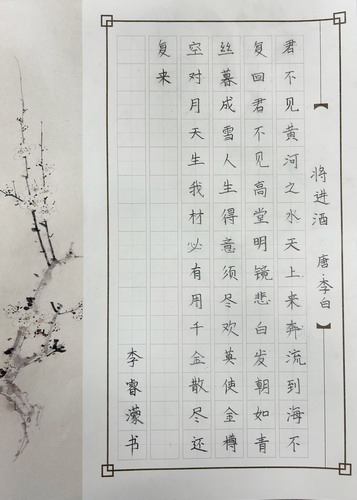 将进酒 唐·李白
君不见黄河之水天上来奔流到海不
复回君不见高堂明镜悲白发朝如青
丝暮成雪人生得意须尽欢莫使金樽
空对月天生我材必有用千金散尽还
复来
李睿濛书